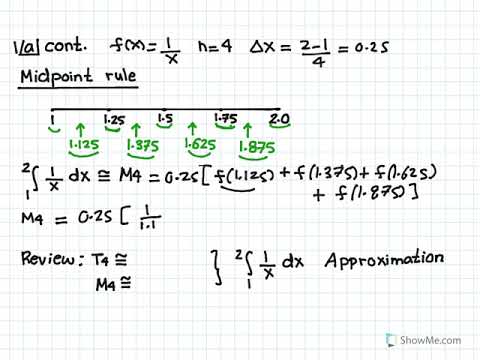 1/a) cont. f(x)=1/x n=4 Δx = 2-1/4 = 0.25
Midpoint rule
1 1.25 1.5 1.75 2.0
1.125 1.375 1.625 1.875
²∫₁ 1/x dx ≅ M4 = 0.25 [ f(1.125) + f(1.375) + f(1.625)
+ f(1.875) ]
M4 = 0.25 [ 1/1.1
Review: T4 ≅ } ²∫₁ 1/x dx Approximation
M4 ≅
ShowMe.com